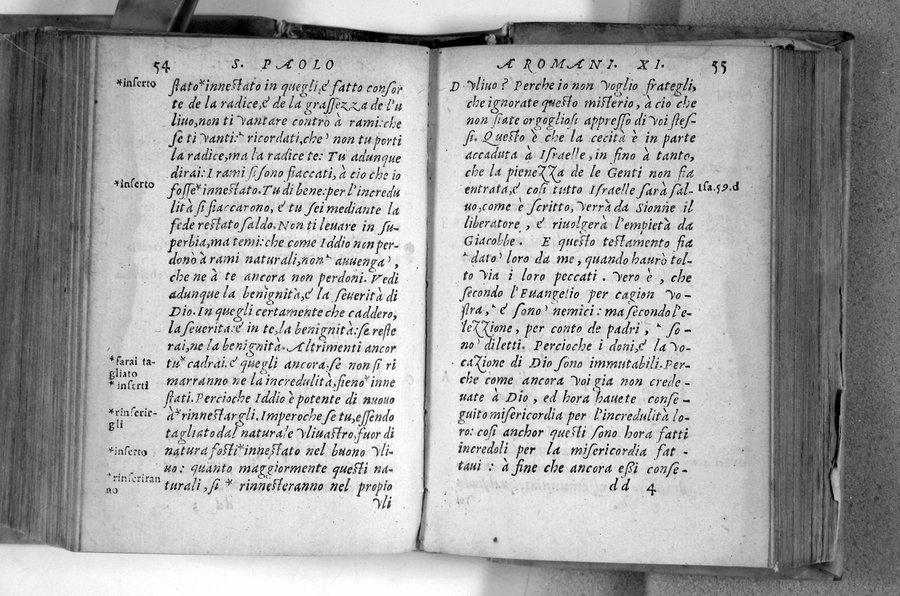 54 S. PAOLO
*inserto
stato*innestato in quegli,é fatto consor
te de la radice,é de la grassezza de l'u
liuo,non ti vantare contrò à rami:che
se ti vanti: ricordati,che non tu porti
la radice,ma la radice te: Tu adunque
dirai: I rami si sono fiaccati, à cio che io
*inserto
fosse*innestato. Tu di bene: per l'incredu
lità si fiaccarono, é tu sei mediante la
fede restato saldo. Non ti leuare in su-
perbia,ma temi:che come Iddio non per-
donò à rami naturali,non auuenga,
che ne à te ancora non perdoni. Vedi
adunque la benignità,é la seuerità di
Dio. In quegli certamente che caddero,
la seuerità:é in te,la benignità:se reste
rai,ne la benignità. Altrimenti ancor
*sarai ta-
gliato
tu*cadrai. é quegli ancora,se non si ri
*inserti
marranno ne la incredulità, sieno*inne
stati. Percioche Iddio è potente di nuouo
*rinserir-
gli
à*rinnestargli. Imperoche se tu,essendo
tagliato dal naturale vliuastro,fuor di
*inserto
natura fosti*innestato nel buono vli-
uo: quanto maggiormente questi na-
*rinseriran
no
turali,si * rinnesteranno nel propio
vli
A ROMANI. XI. 55
D vliuo? Perche io non voglio frategli,
che ignorate questo misterio, à cio che
non siate orgogliosi appresso di voi stes-
si. Questo è che la cecità è in parte
accaduta à Israelle, in fino à tanto,
che la pienezza de le Genti non sia
entrata,é cosi tutto Israelle sarà sal-
Isa.59.d
uo,come è scritto, verrà da Sionne il
liberatore, é riuolgerà l'empietà da
Giacobbe. E questo testamento sia
dato loro da me, quando haurò tol-
to via i loro peccati. Vero è, che
secondo l'Euangelio per cagion vo-
stra, é sono nemici: ma secondo l'e-
lezzione, per conto de padri, so-
no diletti. Percioche i doni,é la vo-
cazione di Dio sono immutabili. Per-
che come ancora voi gia non crede-
uate à Dio, ed hora hauete conse-
guito misericordia per l'incredulità lo-
ro: cosi anchor questi sono hora fatti
incredoli per la misericordia fat-
taui: à fine che ancora essi conse-
dd 4